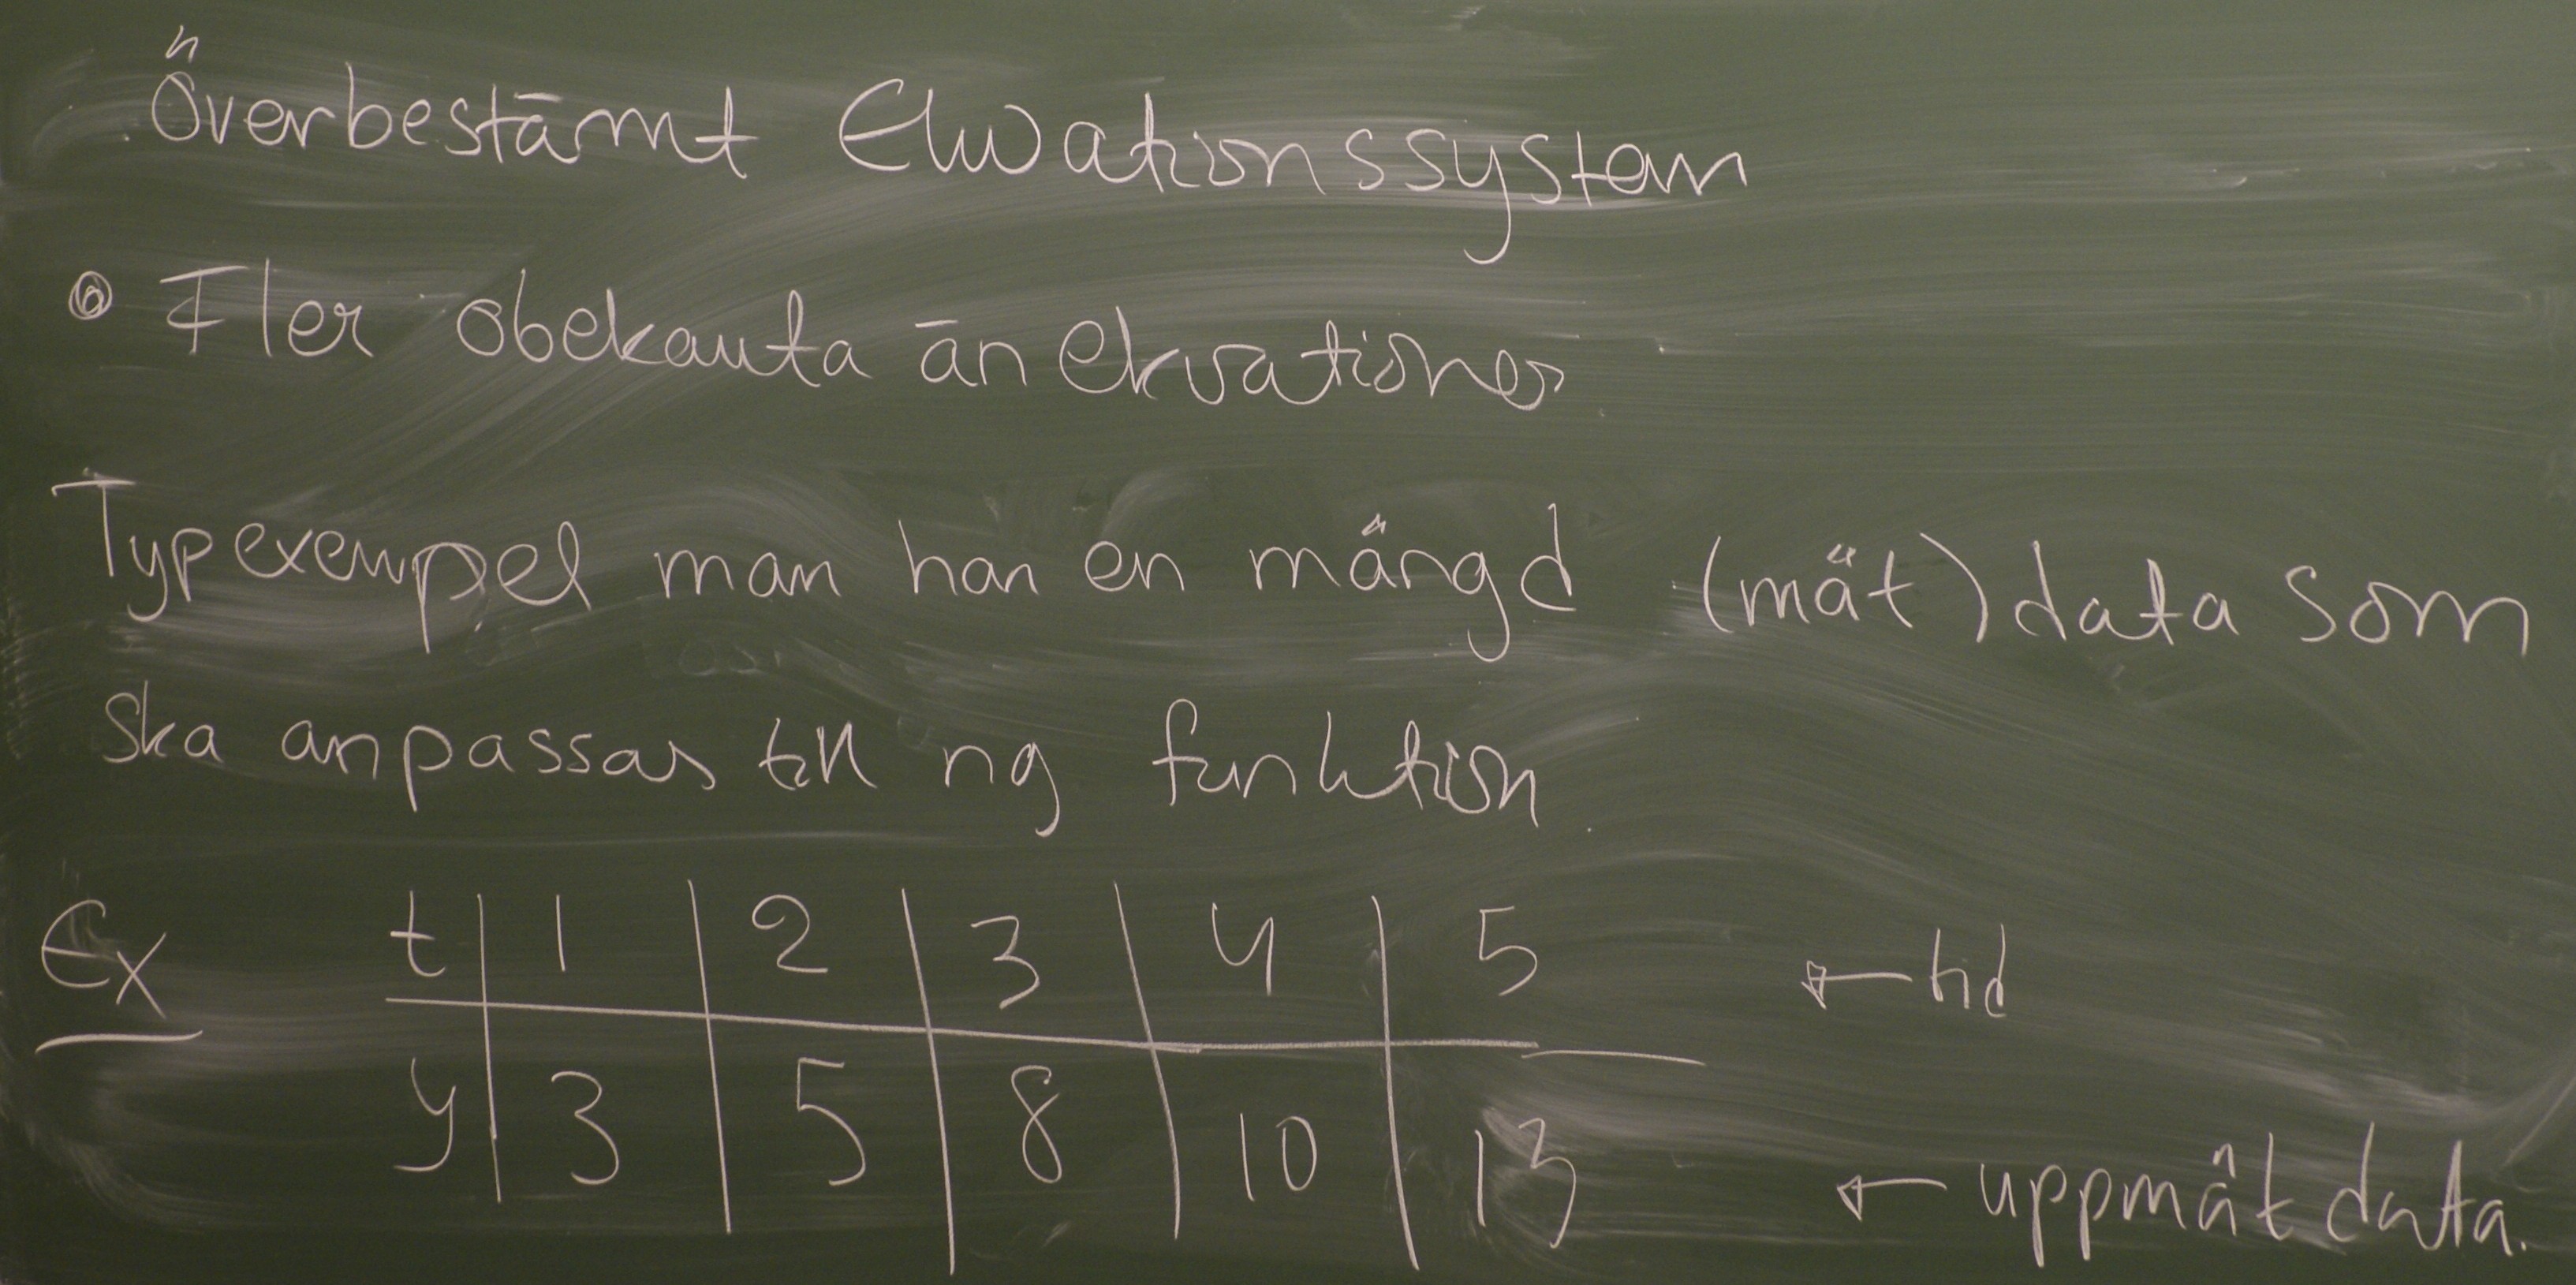 Överbestämt Ekvationssystem
Fler obekanta än ekvationer
Typexempel man har en mängd (mät)data som
ska anpassas till ng funktion.
Ex t 1 2 3 4 5 ← tid
y 3 5 8 10 13 ← uppmät data.